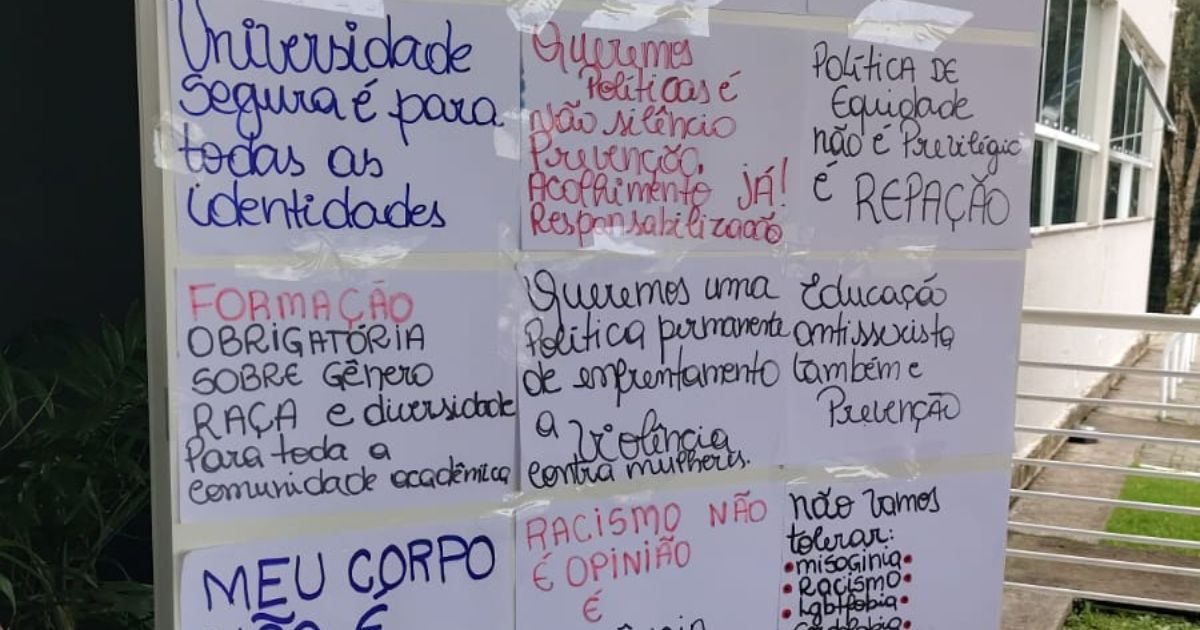 Universidade
Segura é para
todas as
identidades
Queremos
Políticas é
não silêncio
Prevenção,
Acolhimento JÁ!
Responsabilização
POLÍTICA DE
Equidade
não é Previlégio
é REPAÇÃO
FORMAÇÃO
OBRIGATÓRIA
SOBRE Gênero
RAÇA e diversidade
Para toda a
comunidade acadêmica
Queremos uma
Política permanente
de enfrentamento
a Violência
contra mulheres.
Educação
antissexista
também e
Prevenção
MEU CORPO
NÃO É
RACISMO NÃO
É OPINIÃO
É
não vamos
tolerar:
• misoginia •
• Racismo •
• Lgbtfobia •